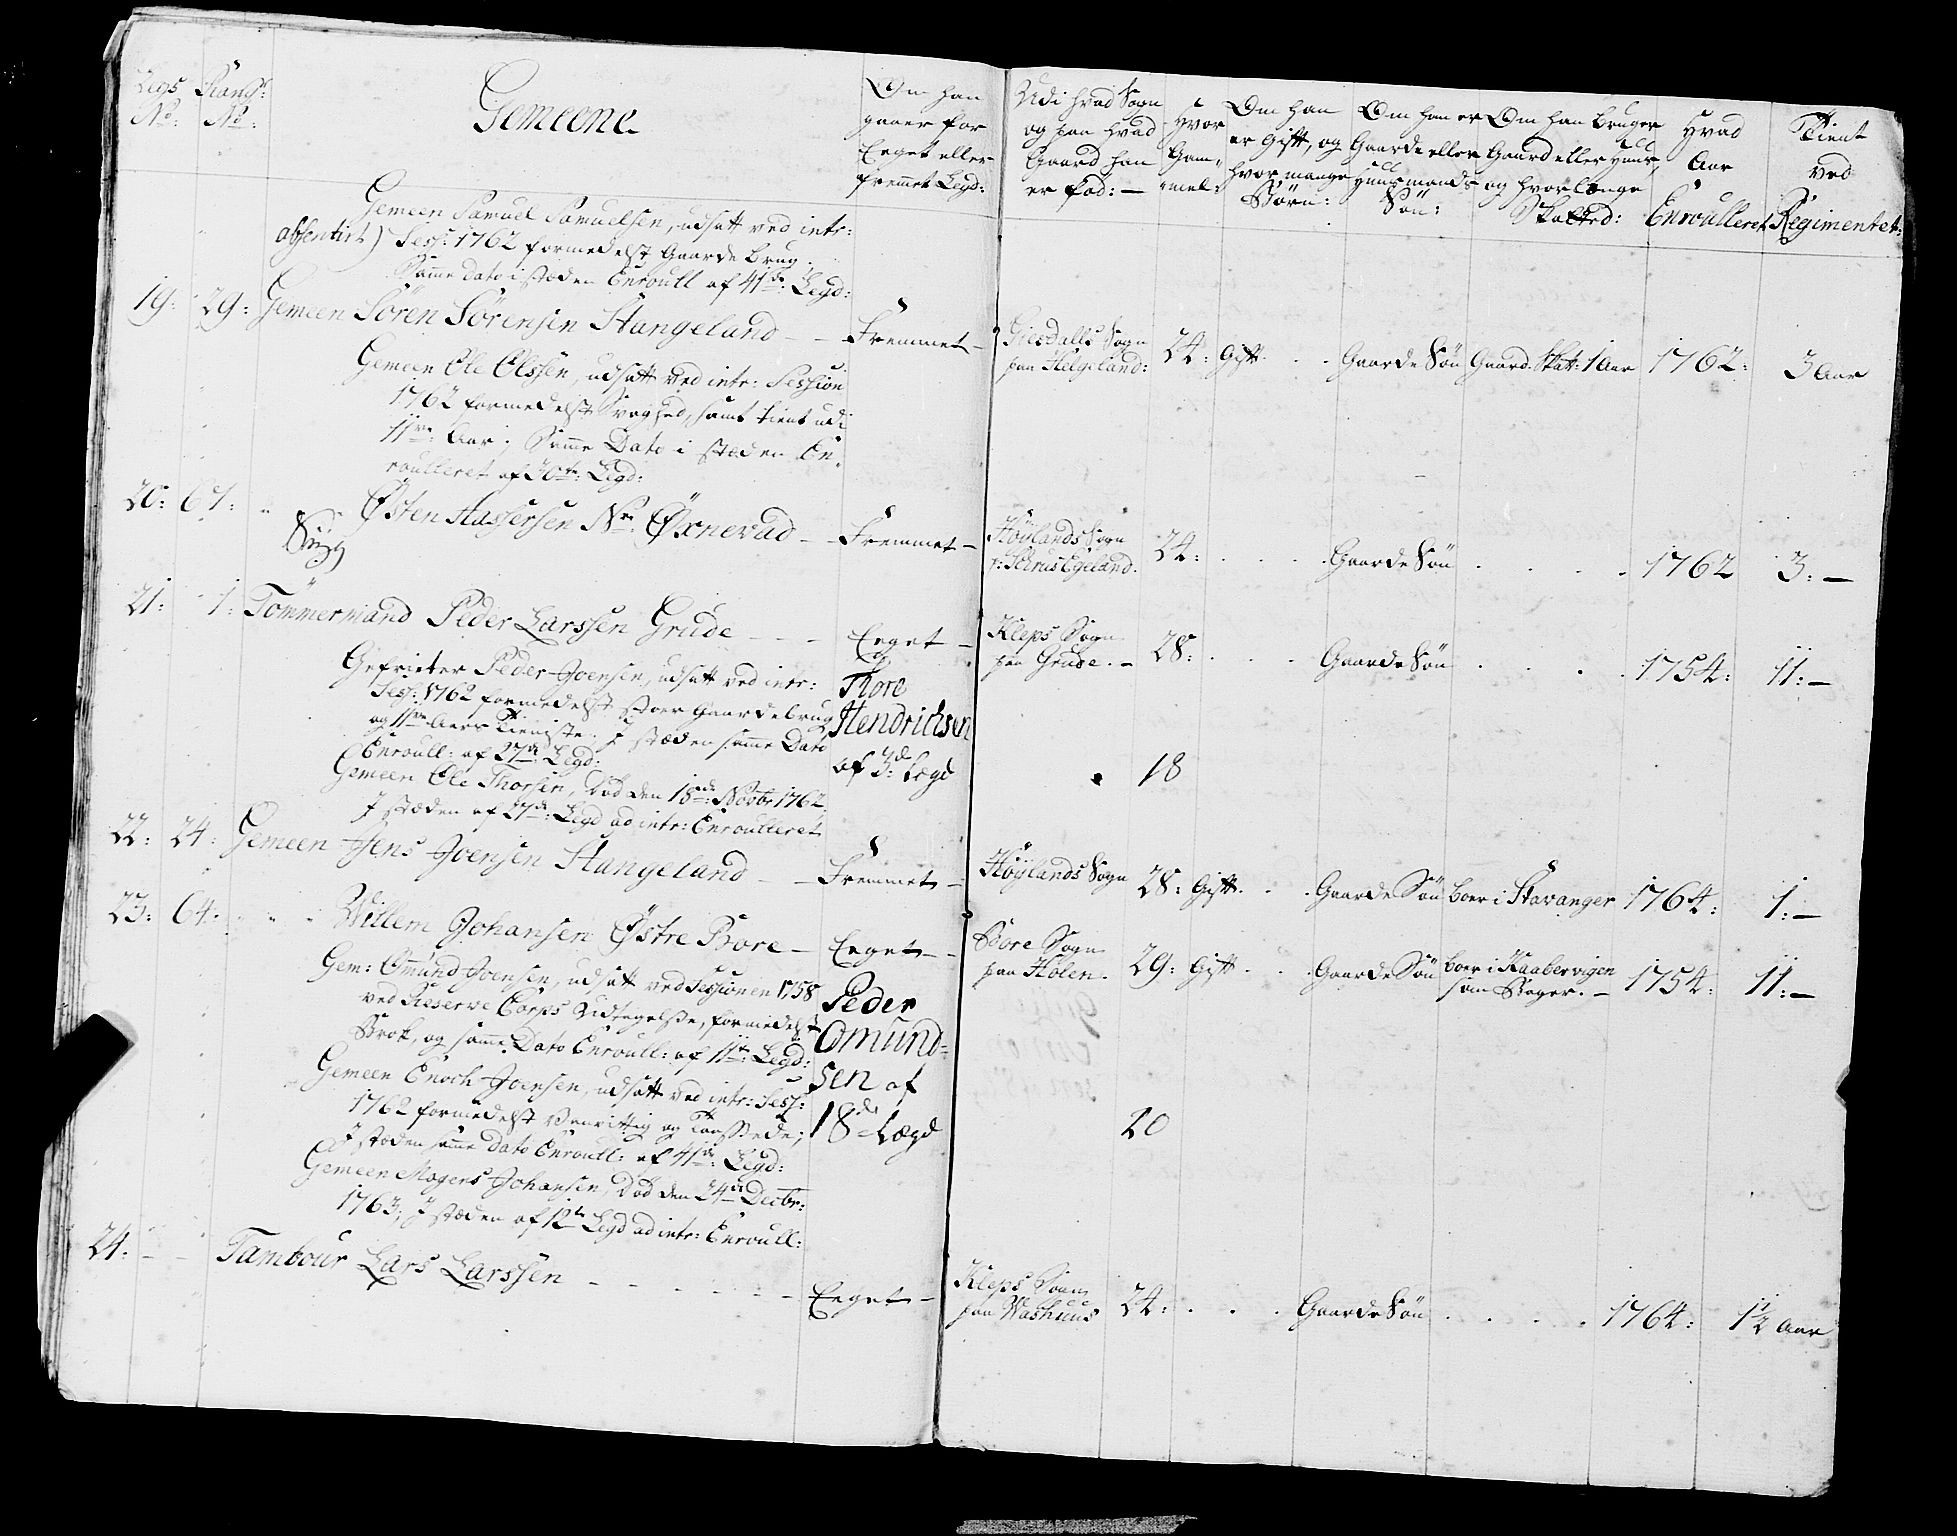 Legs No:
Rang: No:
Gemeene
Om han
gaaer for
Eeget eller
fremmet Legd:
Udi hvad Sogn
og paa hvad
Gaard han
er fød: —
Hvor
Gam„
mel:
Om han
er Gift, og
hvor mange
Børn:
Om han er
Gaarde eller
Huusmands
Søn:
Om han bruger
Gaard eller Huus,
og hvor længe
Skatted:
Hvad
Aar
Enroulleret
Tient
ved
Regimentet:
Gemeen Samuel Samuelsen, udsatt ved intr:
absentirt) Sess: 1762 formedelst Gaarde brug.
Samme dato i stæden Enroull af 41de: Legd:
19: 29: Gemeen Sören Sörensen Stangeland — Fremmet — Giesdalls Sogn
paa Helgeland: 24: Gift . . Gaarde Søn Gaard. Skatt: 1 Aar 1762: 3 Aar
Gemeen Ole Olssen, udsatt ved intr: Session
1762 formedelst Svaghed, samt tient udi
11ve: Aar; Samme Dato i stæden En„
roulleret af 30te: Legd:
20: 67: „ „ Østen Assersen Nr: Øxnevad — Fremmet — Höylands Sogn
24: . . . Gaarde Søn . . . 1762 3: —
Syg
21: 1: Tömmermand Peder Larssen Grude — — — Eeget — Kleps Sogn
paa Grude. — 28: . . . Gaarde Søn . . . 1754: 11: —
Gefrieter Peder Joensen, udsatt ved intr:
Sess: 1762 formedelst stoer Gaardebrug
og 11ve Aars Tieniste. I stæden samme Dato
Enroull: af 27de Legd:
Thore
Hendrichsen
af 3de Lægd
18
Gemeen Ole Thorsen, død den 18de: Novbr 1762,
I stæden af 27de: Legd ad intr: Enroulleret
22: 24: Gemeen Jens Joensen Stangeland — — Fremmet — Höylands Sogn 28: Gift. . . Gaarde Søn boer i Stavanger 1764: 1: —
23: 64: „ „ „ Willem Johansen Østre Bore — Eeget — Bore Sogn
paa Holen. 29: Gift . . Gaarde Søn boer i Kaabervigen
som Bager. — 1754: 11: —
Gem: Omund Joensen, udsatt ved Sessionen 1758
ved Reserve Corps Udtegelse, formedelst
Brok, og samme Dato Enroull: af 11te: Legd:
Gemeen Enoch Joensen, udsatt ved intr: Sess:
1762 formedelst Vanvittig og Taassede;
I stæden samme dato Enroull: af 41de: Legd:
Gemeen Mogens Johansen, død den 24de Decbr:
1763; I stæden af 12te Legd ad intr: Enroull:
Peder
Omund=
sen af
18de Lægd
20
24: — — Tambour Lars Larssen — — — — — Eeget — Kleps Sogn
paa Washuus 24: . . . Gaarde Søn . . . . 1764: 1½ Aar